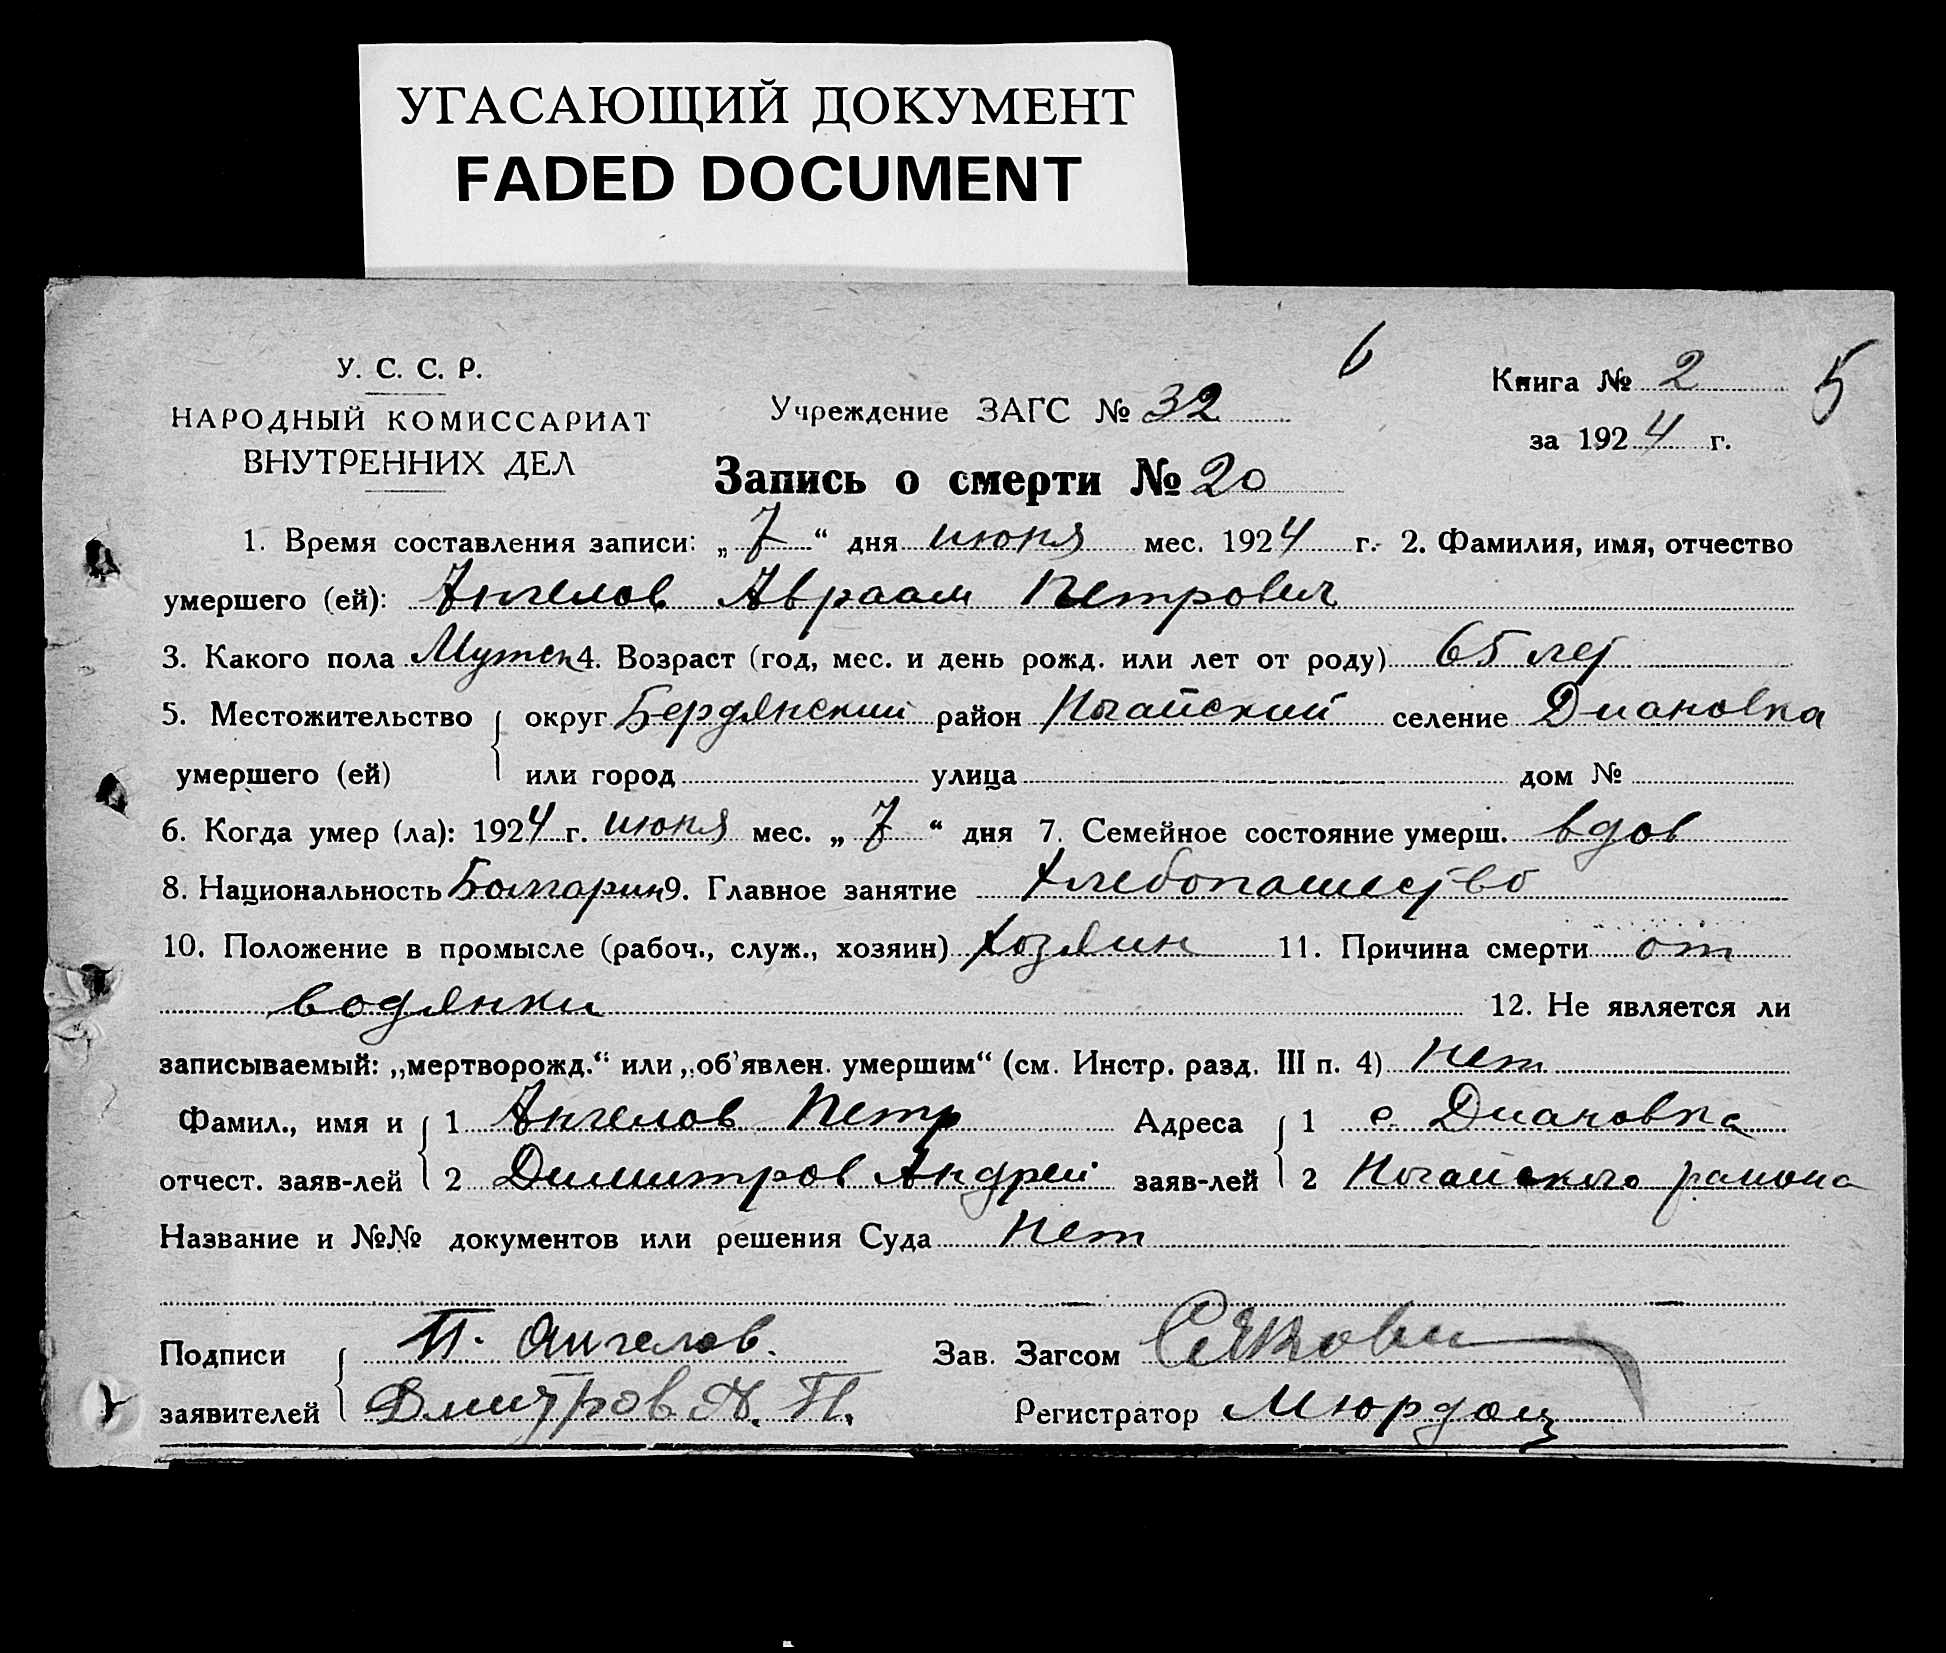 УГАСАЮЩИЙ ДОКУМЕНТ
FADED DOCUMENT
6
У. С. С. Р.
НАРОДНЫЙ КОМИССАРИАТ
ВНУТРЕННИХ ДЕЛ
Учреждение ЗАГС № 32
Книга № 2
5
за 1924 г.
Запись о смерти № 20
1. Время составления записи: „7“ дня июня мес. 1924 г. 2. Фамилия, имя, отчество
умершего (ей): Ангелов Авраам Петрович
3. Какого пола Мужск 4. Возраст (год, мес. и день рожд. или лет от роду) 65 лет
5. Местожительство округ Бердянский район Ногайский селение Диановка
умершего (ей) или город улица дом №
6. Когда умер (ла): 1924 г. июня мес. „7“ дня 7. Семейное состояние умерш. вдов
8. Национальность Болгарин 9. Главное занятие Хлебопашество
10. Положение в промысле (рабоч., служ., хозяин) Хозяин 11. Причина смерти от
водянки 12. Не является ли
записываемый: „мертворожд.“ или „об'явлен. умершим“ (см. Инстр. разд. III п. 4) нет
Фамил., имя и 1 Ангелов Петр Адреса 1 с. Диановка
отчест. заяв-лей 2 Димитров Андрей заяв-лей 2 Ногайского района
Название и №№ документов или решения Суда нет
Подписи П. Ангелов. Зав. Загсом
заявителей Дмитров А. П. Регистратор